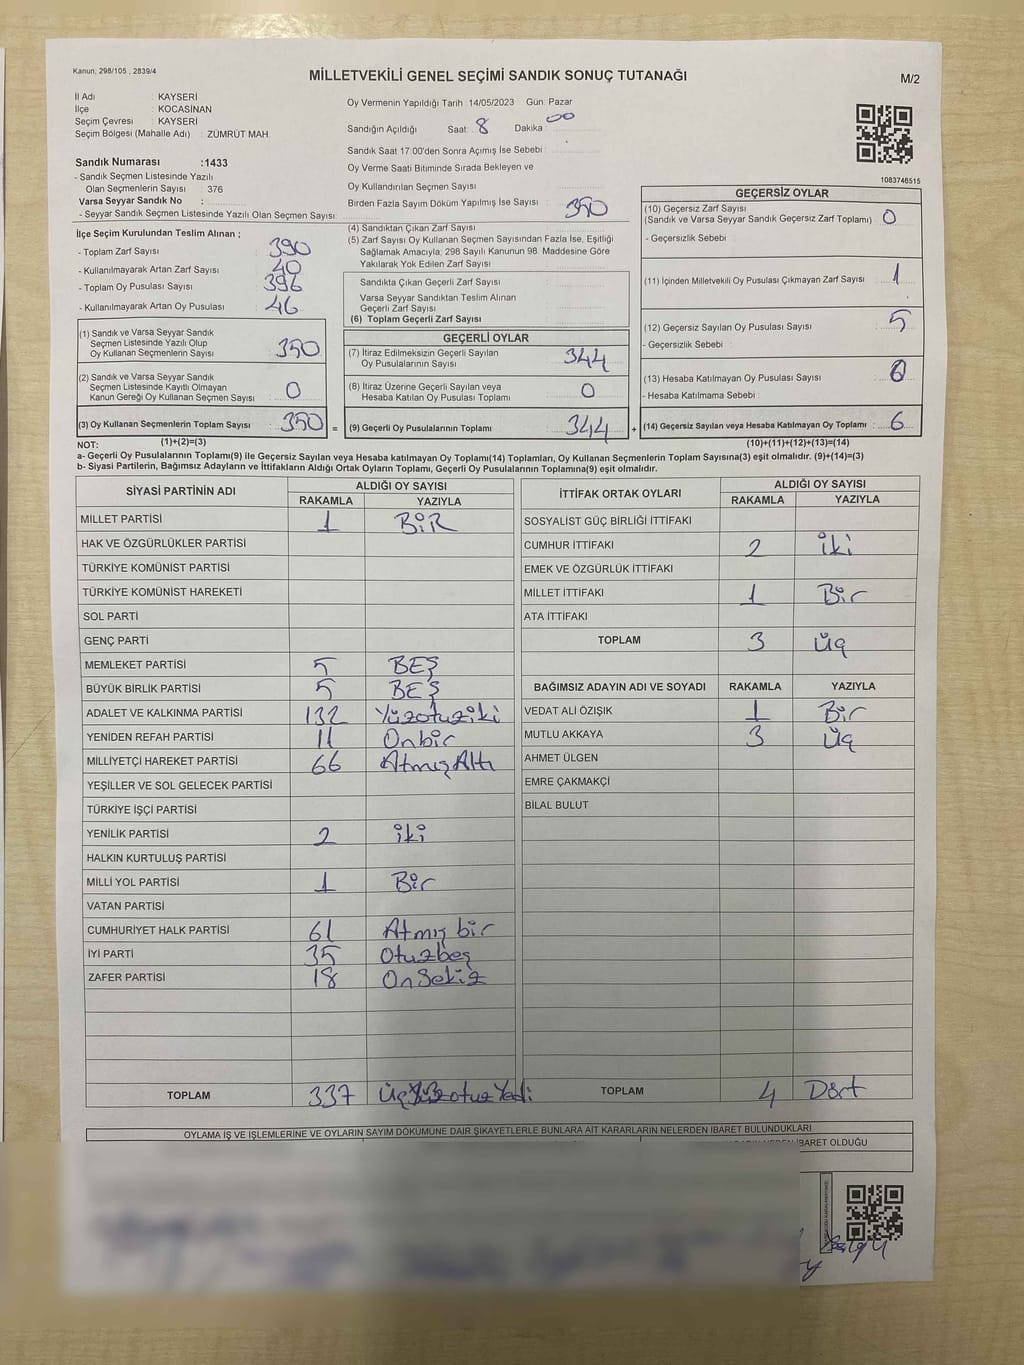 Kanun; 298/105 , 2839/4
MİLLETVEKİLİ GENEL SEÇİMİ SANDIK SONUÇ TUTANAĞI
M/2
İl Adı : KAYSERİ
İlçe : KOCASİNAN
Seçim Çevresi : KAYSERİ
Seçim Bölgesi (Mahalle Adı) : ZÜMRÜT MAH.
Sandık Numarası :1433
- Sandık Seçmen Listesinde Yazılı
Olan Seçmenlerin Sayısı : 376
Varsa Seyyar Sandık No :
- Seyyar Sandık Seçmen Listesinde Yazılı Olan Seçmen Sayısı:
Oy Vermenin Yapıldığı Tarih :14/05/2023 Gün: Pazar
Sandığın Açıldığı Saat: 8 Dakika: 00
Sandık Saat 17:00'den Sonra Açımış İse Sebebi :
Oy Verme Saati Bitiminde Sırada Bekleyen ve
Oy Kullandırılan Seçmen Sayısı
Birden Fazla Sayım Döküm Yapılmış İse Sayısı : 350
1083746515
İlçe Seçim Kurulundan Teslim Alınan ;
- Toplam Zarf Sayısı : 390
- Kullanılmayarak Artan Zarf Sayısı : 40
- Toplam Oy Pusulası Sayısı : 396
- Kullanılmayarak Artan Oy Pusulası : 46
(1) Sandık ve Varsa Seyyar Sandık
Seçmen Listesinde Yazılı Olup
Oy Kullanan Seçmenlerin Sayısı : 350
(2) Sandık ve Varsa Seyyar Sandık
Seçmen Listesinde Kayıtlı Olmayan
Kanun Gereği Oy Kullanan Seçmen Sayısı : 0
(3) Oy Kullanan Seçmenlerin Toplam Sayısı : 350 =
(1)+(2)=(3)
(4) Sandıktan Çıkan Zarf Sayısı
(5) Zarf Sayısı Oy Kullanan Seçmen Sayısından Fazla İse, Eşitliği
Sağlamak Amacıyla; 298 Sayılı Kanunun 98. Maddesine Göre
Yakılarak Yok Edilen Zarf Sayısı
Sandıkta Çıkan Geçerli Zarf Sayısı
Varsa Seyyar Sandıktan Teslim Alınan
Geçerli Zarf Sayısı
(6) Toplam Geçerli Zarf Sayısı
GEÇERLİ OYLAR
(7) İtiraz Edilmeksizin Geçerli Sayılan
Oy Pusulalarının Sayısı : 344
(8) İtiraz Üzerine Geçerli Sayılan veya
Hesaba Katılan Oy Pusulası Toplamı : 0
(9) Geçerli Oy Pusulalarının Toplamı : 344 +
GEÇERSİZ OYLAR
(10) Geçersiz Zarf Sayısı
(Sandık ve Varsa Seyyar Sandık Geçersiz Zarf Toplamı) : 0
- Geçersizlik Sebebi :
(11) İçinden Milletvekili Oy Pusulası Çıkmayan Zarf Sayısı : 1
(12) Geçersiz Sayılan Oy Pusulası Sayısı : 5
- Geçersizlik Sebebi :
(13) Hesaba Katılmayan Oy Pusulası Sayısı : 0
- Hesaba Katılmama Sebebi :
(14) Geçersiz Sayılan veya Hesaba Katılmayan Oy Toplamı : 6
(10)+(11)+(12)+(13)=(14)
NOT:
a- Geçerli Oy Pusulalarının Toplamı(9) ile Geçersiz Sayılan veya Hesaba katılmayan Oy Toplamı(14) Toplamları, Oy Kullanan Seçmenlerin Toplam Sayısına(3) eşit olmalıdır. (9)+(14)=(3)
b- Siyasi Partilerin, Bağımsız Adayların ve İttifakların Aldığı Ortak Oyların Toplamı, Geçerli Oy Pusulalarının Toplamına(9) eşit olmalıdır.
SİYASİ PARTİNİN ADI ALDIĞI OY SAYISI
RAKAMLA YAZIYLA
MİLLET PARTİSİ 1 BİR
HAK VE ÖZGÜRLÜKLER PARTİSİ
TÜRKİYE KOMÜNİST PARTİSİ
TÜRKİYE KOMÜNİST HAREKETİ
SOL PARTİ
GENÇ PARTİ
MEMLEKET PARTİSİ 5 BEŞ
BÜYÜK BİRLİK PARTİSİ 5 BEŞ
ADALET VE KALKINMA PARTİSİ 132 Yüzotuziki
YENİDEN REFAH PARTİSİ 11 Onbir
MİLLİYETÇİ HAREKET PARTİSİ 66 AtmışAltı
YEŞİLLER VE SOL GELECEK PARTİSİ
TÜRKİYE İŞÇİ PARTİSİ
YENİLİK PARTİSİ 2 iki
HALKIN KURTULUŞ PARTİSİ
MİLLİ YOL PARTİSİ 1 Bir
VATAN PARTİSİ
CUMHURİYET HALK PARTİSİ 61 Atmış bir
İYİ PARTİ 35 Otuzbeş
ZAFER PARTİSİ 18 OnSekiz
TOPLAM 337 ÜçYüzotuzYedi
İTTİFAK ORTAK OYLARI ALDIĞI OY SAYISI
RAKAMLA YAZIYLA
SOSYALİST GÜÇ BİRLİĞİ İTTİFAKI
CUMHUR İTTİFAKI 2 iki
EMEK VE ÖZGÜRLÜK İTTİFAKI
MİLLET İTTİFAKI 1 Bir
ATA İTTİFAKI
TOPLAM 3 üç
BAĞIMSIZ ADAYIN ADI VE SOYADI RAKAMLA YAZIYLA
VEDAT ALİ ÖZIŞIK 1 Bir
MUTLU AKKAYA 3 üç
AHMET ÜLGEN
EMRE ÇAKMAKÇİ
BİLAL BULUT
TOPLAM 4 Dört
OYLAMA İŞ VE İŞLEMLERİNE VE OYLARIN SAYIM DÖKÜMÜNE DAİR ŞİKAYETLERLE BUNLARA AİT KARARLARIN NELERDEN İBARET BULUNDUKLARI
İBARET OLDUĞU